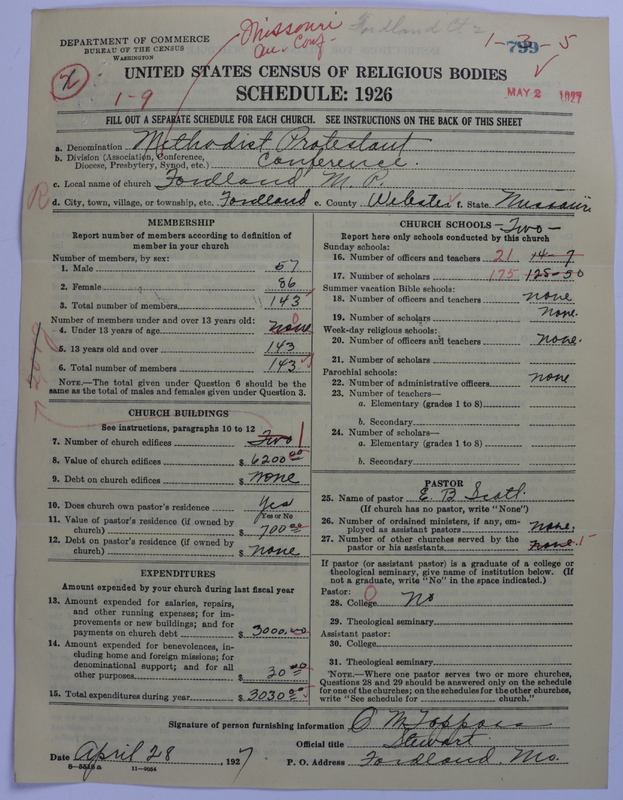 DEPARTMENT OF COMMERCE
BUREAU OF THE CENSUS
WASHINGTON
Missouri
Conf
Fordland Ct 2
1-3-5
799
1-9
MAY 2 1927
UNITED STATES CENSUS OF RELIGIOUS BODIES
SCHEDULE: 1926
FILL OUT A SEPARATE SCHEDULE FOR EACH CHURCH. SEE INSTRUCTIONS ON THE BACK OF THIS SHEET
a. Denomination Methodist Protestant
b. Division (Association, Conference, Diocese, Presbytery, Synod, etc.) Conference.
c. Local name of church Fordland M. P.
d. City, town, village, or township, etc. Fordland e. County Webster f. State Missouri
MEMBERSHIP
Report number of members according to definition of
member in your church
Number of members, by sex:
1. Male 57
2. Female 86
3. Total number of members 143
Number of members under and over 13 years old:
4. Under 13 years of age none 0
5. 13 years old and over 143
6. Total number of members 143
NOTE.—The total given under Question 6 should be the
same as the total of males and females given under Question 3.
CHURCH BUILDINGS
See instructions, paragraphs 10 to 12
7. Number of church edifices Two 1
8. Value of church edifices $ 6200.00
9. Debt on church edifices $ none
10. Does church own pastor's residence Yes
Yes or No
11. Value of pastor's residence (if owned by
church) $ 700.00
12. Debt on pastor's residence (if owned by
church) $ none
EXPENDITURES
Amount expended by your church during last fiscal year
13. Amount expended for salaries, repairs,
and other running expenses; for im-
provements or new buildings; and for
payments on church debt $ 3000.00
14. Amount expended for benevolences, in-
cluding home and foreign missions; for
denominational support; and for all
other purposes $ 30.00
15. Total expenditures during year $ 3030.00
CHURCH SCHOOLS - Two -
Report here only schools conducted by this church
Sunday schools:
16. Number of officers and teachers 21 14-7
17. Number of scholars 175 125-50
Summer vacation Bible schools:
18. Number of officers and teachers none
19. Number of scholars none.
Week-day religious schools:
20. Number of officers and teachers none.
21. Number of scholars
Parochial schools:
22. Number of administrative officers none
23. Number of teachers—
a. Elementary (grades 1 to 8)
b. Secondary
24. Number of scholars—
a. Elementary (grades 1 to 8)
b. Secondary
PASTOR
25. Name of pastor E. B. Scott.
(If church has no pastor, write "None")
26. Number of ordained ministers, if any, em-
ployed as assistant pastors none.
27. Number of other churches served by the
pastor or his assistants none.
If pastor (or assistant pastor) is a graduate of a college or
theological seminary, give name of institution below. (If
not a graduate, write "No" in the space indicated.)
Pastor: 0
28. College No
29. Theological seminary
Assistant pastor:
30. College
31. Theological seminary
NOTE.—Where one pastor serves two or more churches,
Questions 28 and 29 should be answered only on the schedule
for one of the churches; on the schedules for the other churches,
write "See schedule for ............ church."
Signature of person furnishing information O M
Official title Stewart
Date April 28 1927 P. O. Address Fordland Mo.
11-9054